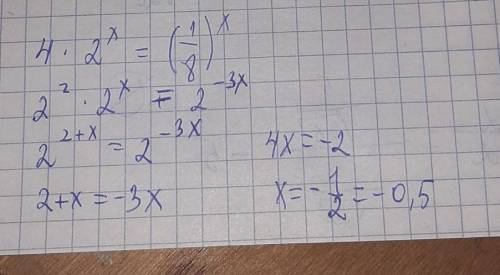 4 · 2^x = (1/8)^x
2^2 · 2^x = 2^{-3x}
2^{2+x} = 2^{-3x}
2+x=-3x
4x=-2
x=-1/2=-0,5